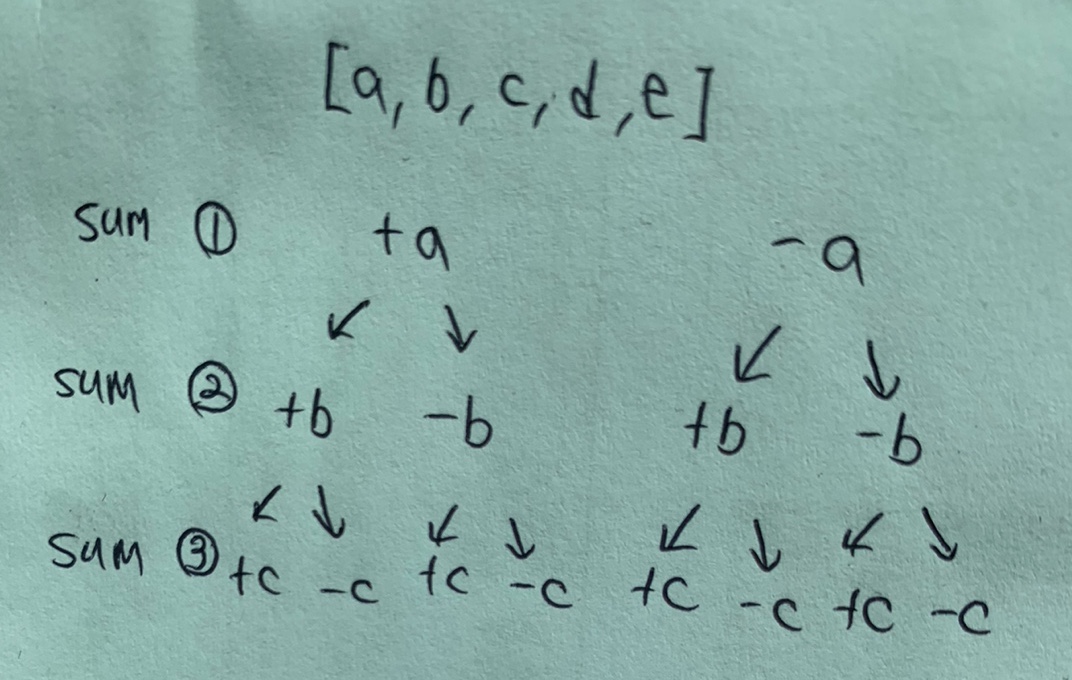 [a, b, c, d, e]
sum ① +a -a
↙ ↓ ↙ ↓
sum ② +b -b +b -b
↙ ↓ ↙ ↓ ↙ ↓ ↙ ↓
sum ③ +c -c +c -c +c -c +c -c